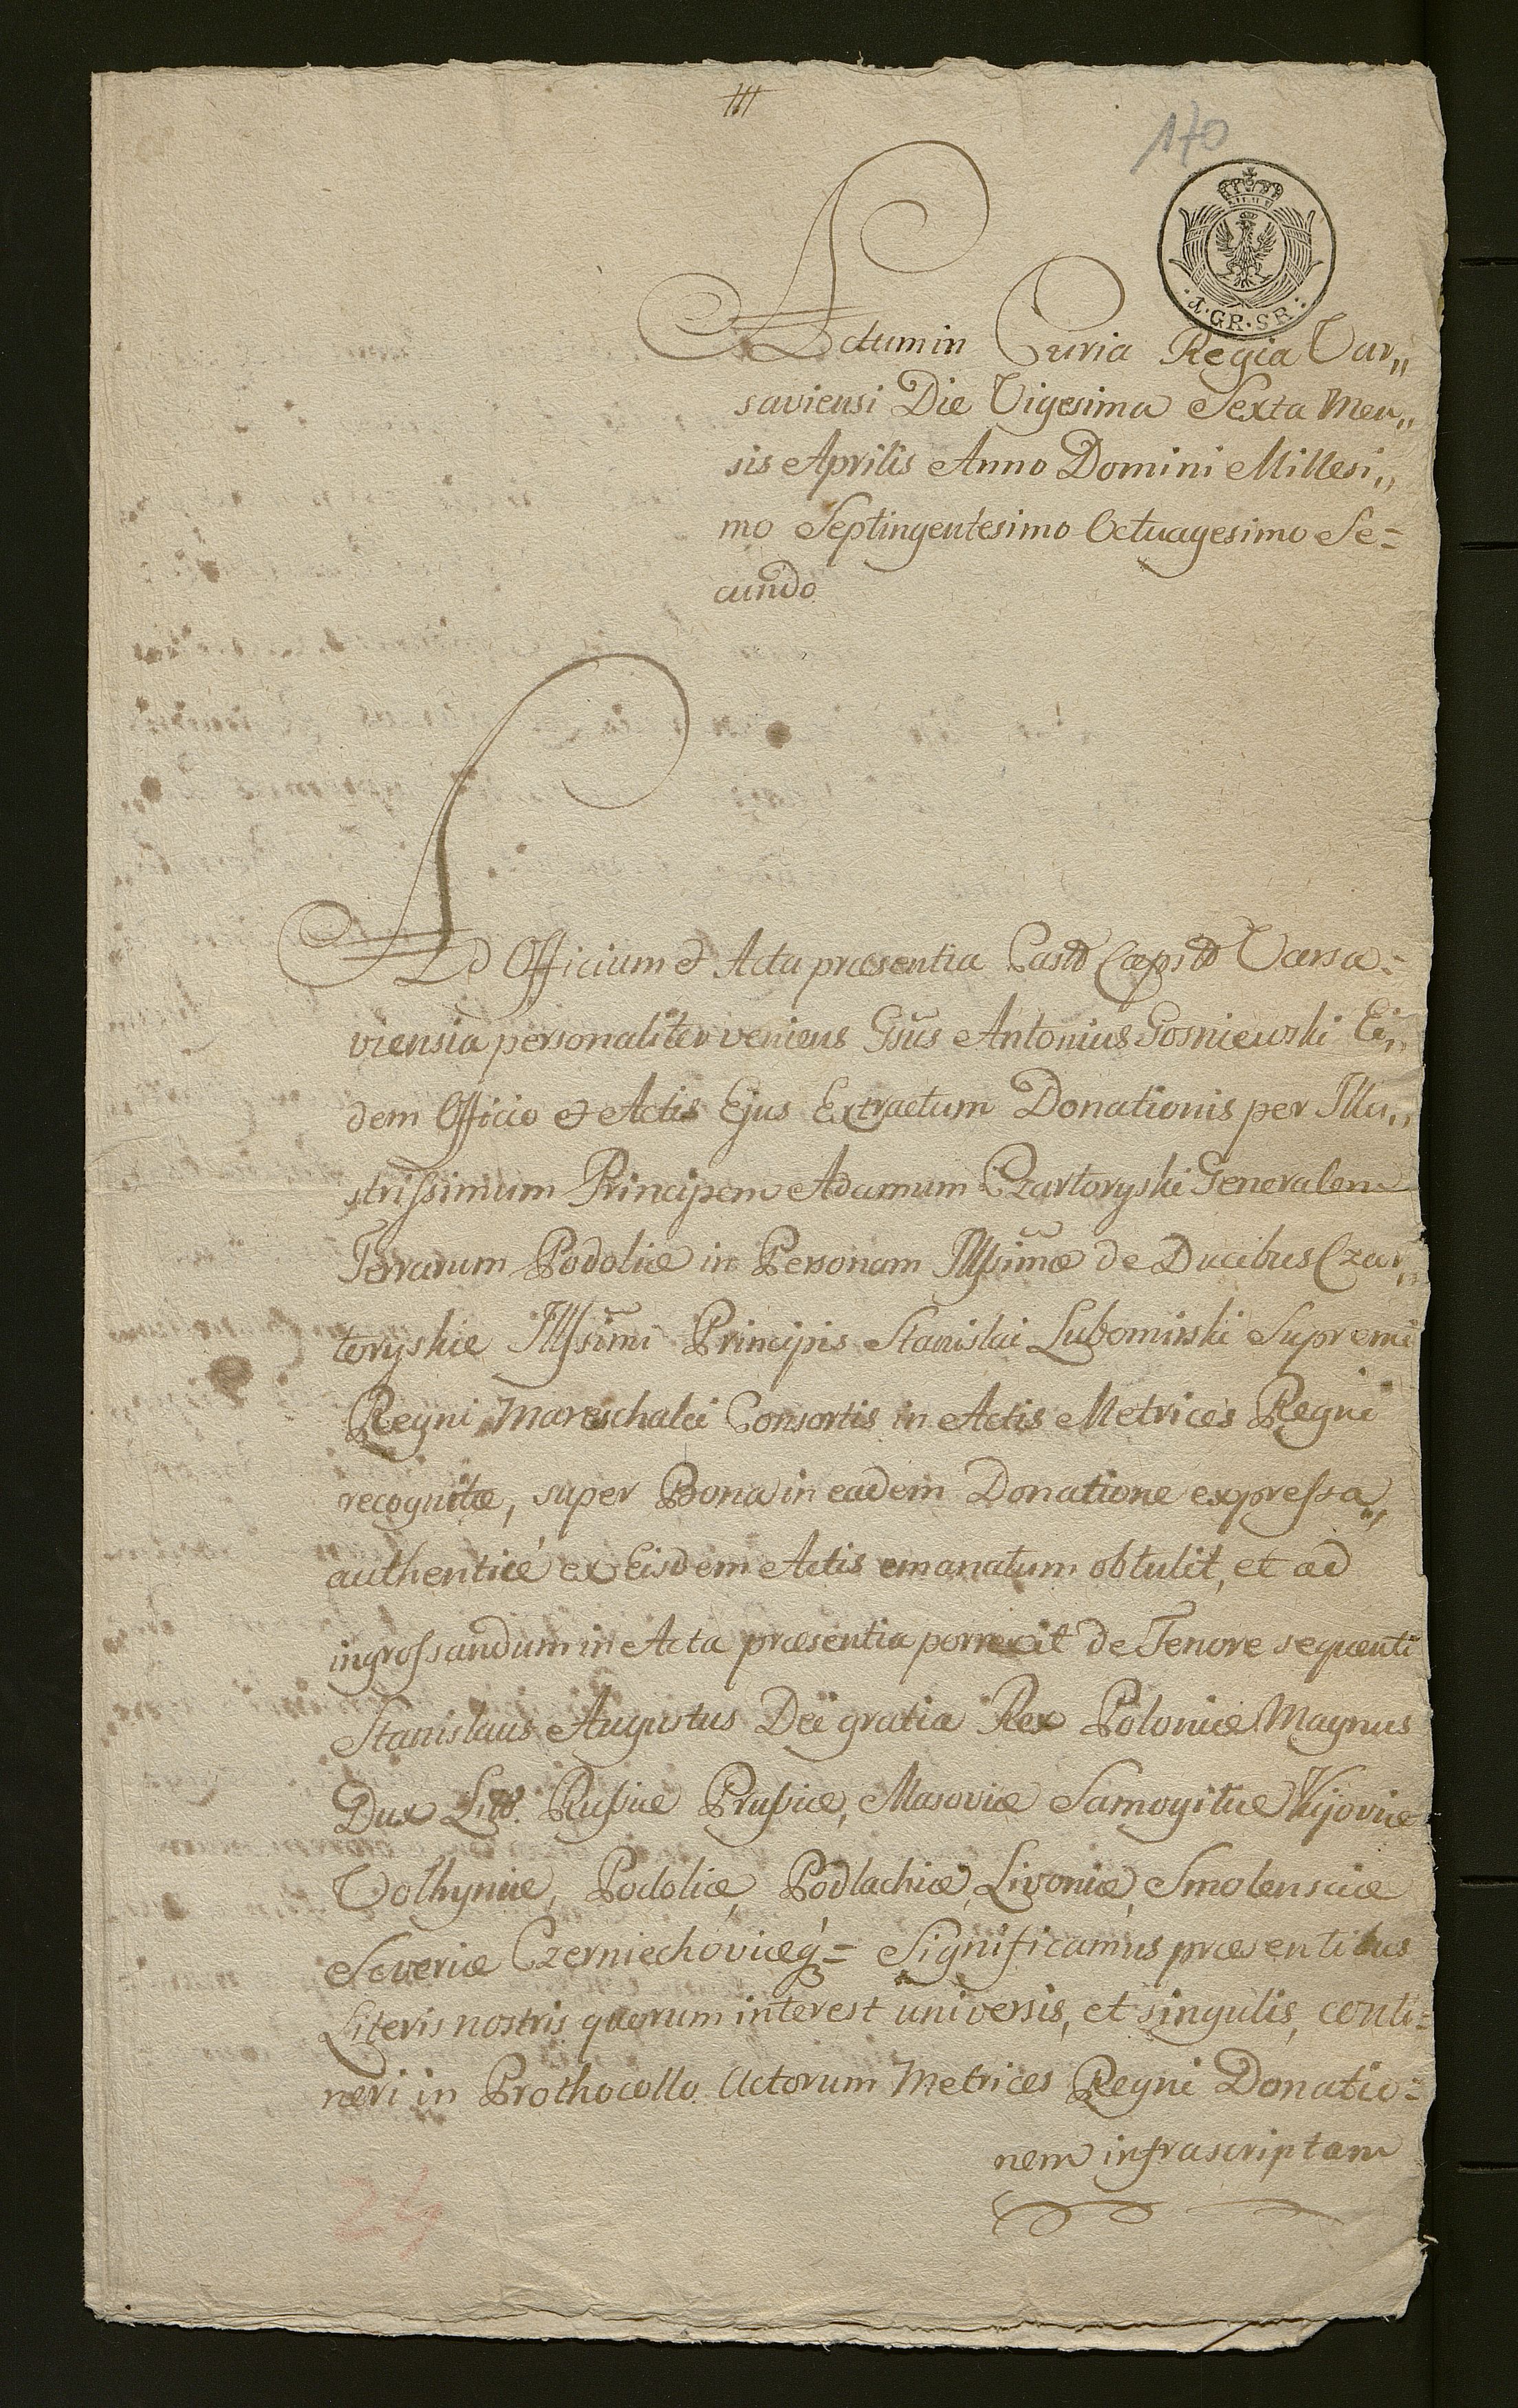 III
170
1·GR·SR·
Actum in Curia Regia Var„
saviensi Die Vigesima Sexta Men„
sis Aprilis Anno Domini Millesi„
mo Septingentesimo Octuagesimo Se=
cundo
Ad Officium et Acta præsentia Castr Capitł Varsa=
viensia personaliter veniens Gsus Antonius Gosniewski Ei„
dem Officio et Actis Ejus Extractum Donationis per Illu„
strissimum Principem Adamum Czartoryski Generalem
Terrarum Podoliæ in Personam Illssimæ de Ducibus Czar„
toryskie Illssimi Principis Stanislai Lubomirski Supremi
Regni Mareschalci Consortis in Actis Metrices Regni
recognitæ, super Bona in eadem Donatione expressa„
authenticè ex Eisdem Actis emanatum obtulit, et ad
ingrossandum in Acta præsentia porrexit de Tenore sequenti
Stanislaus Augustus Dei gratia Rex Poloniæ Magnus
Dux Litt. Russiæ Prussiæ, Masoviæ Samogitiæ Kijoviæ
Volhyniæ, Podoliæ, Podlachiæ, Livoniæ, Smolensciæ
Severiæ Czerniechoviæq= Significamus præsentibus
Literis nostris quorum interest universis, et singulis, conti=
neri in Prothocollo Actorum Metrices Regni Donatio=
nem infrascriptam
24